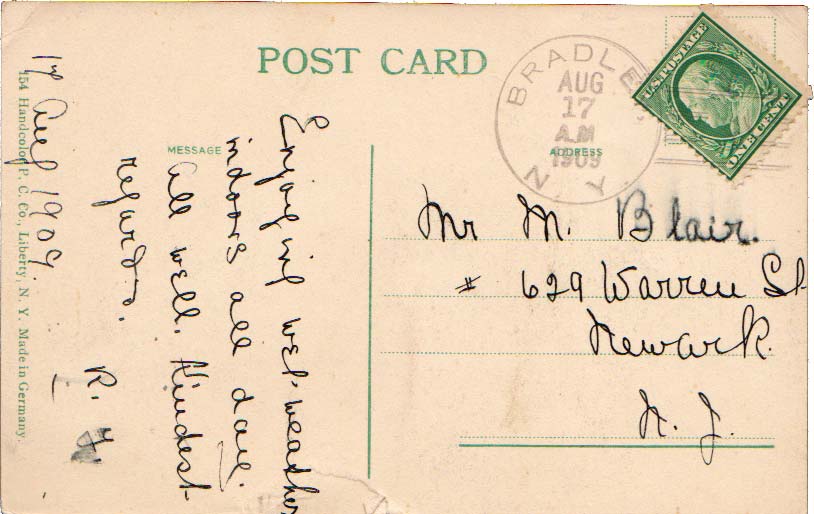 POST CARD
BRADLE
AUG
17
A.M
1909
N. Y.
U.S. POSTAGE
ONE CENT
MESSAGE
ADDRESS
Enjoying wet weather
indoors all day.
All well. Kindest
regards.
R.
17 Aug 1909
154 Handcolor P. C. Co., Liberty, N. Y. Made in Germany.
Mr M. Blair.
# 629 Warren St
Newark
N. J.